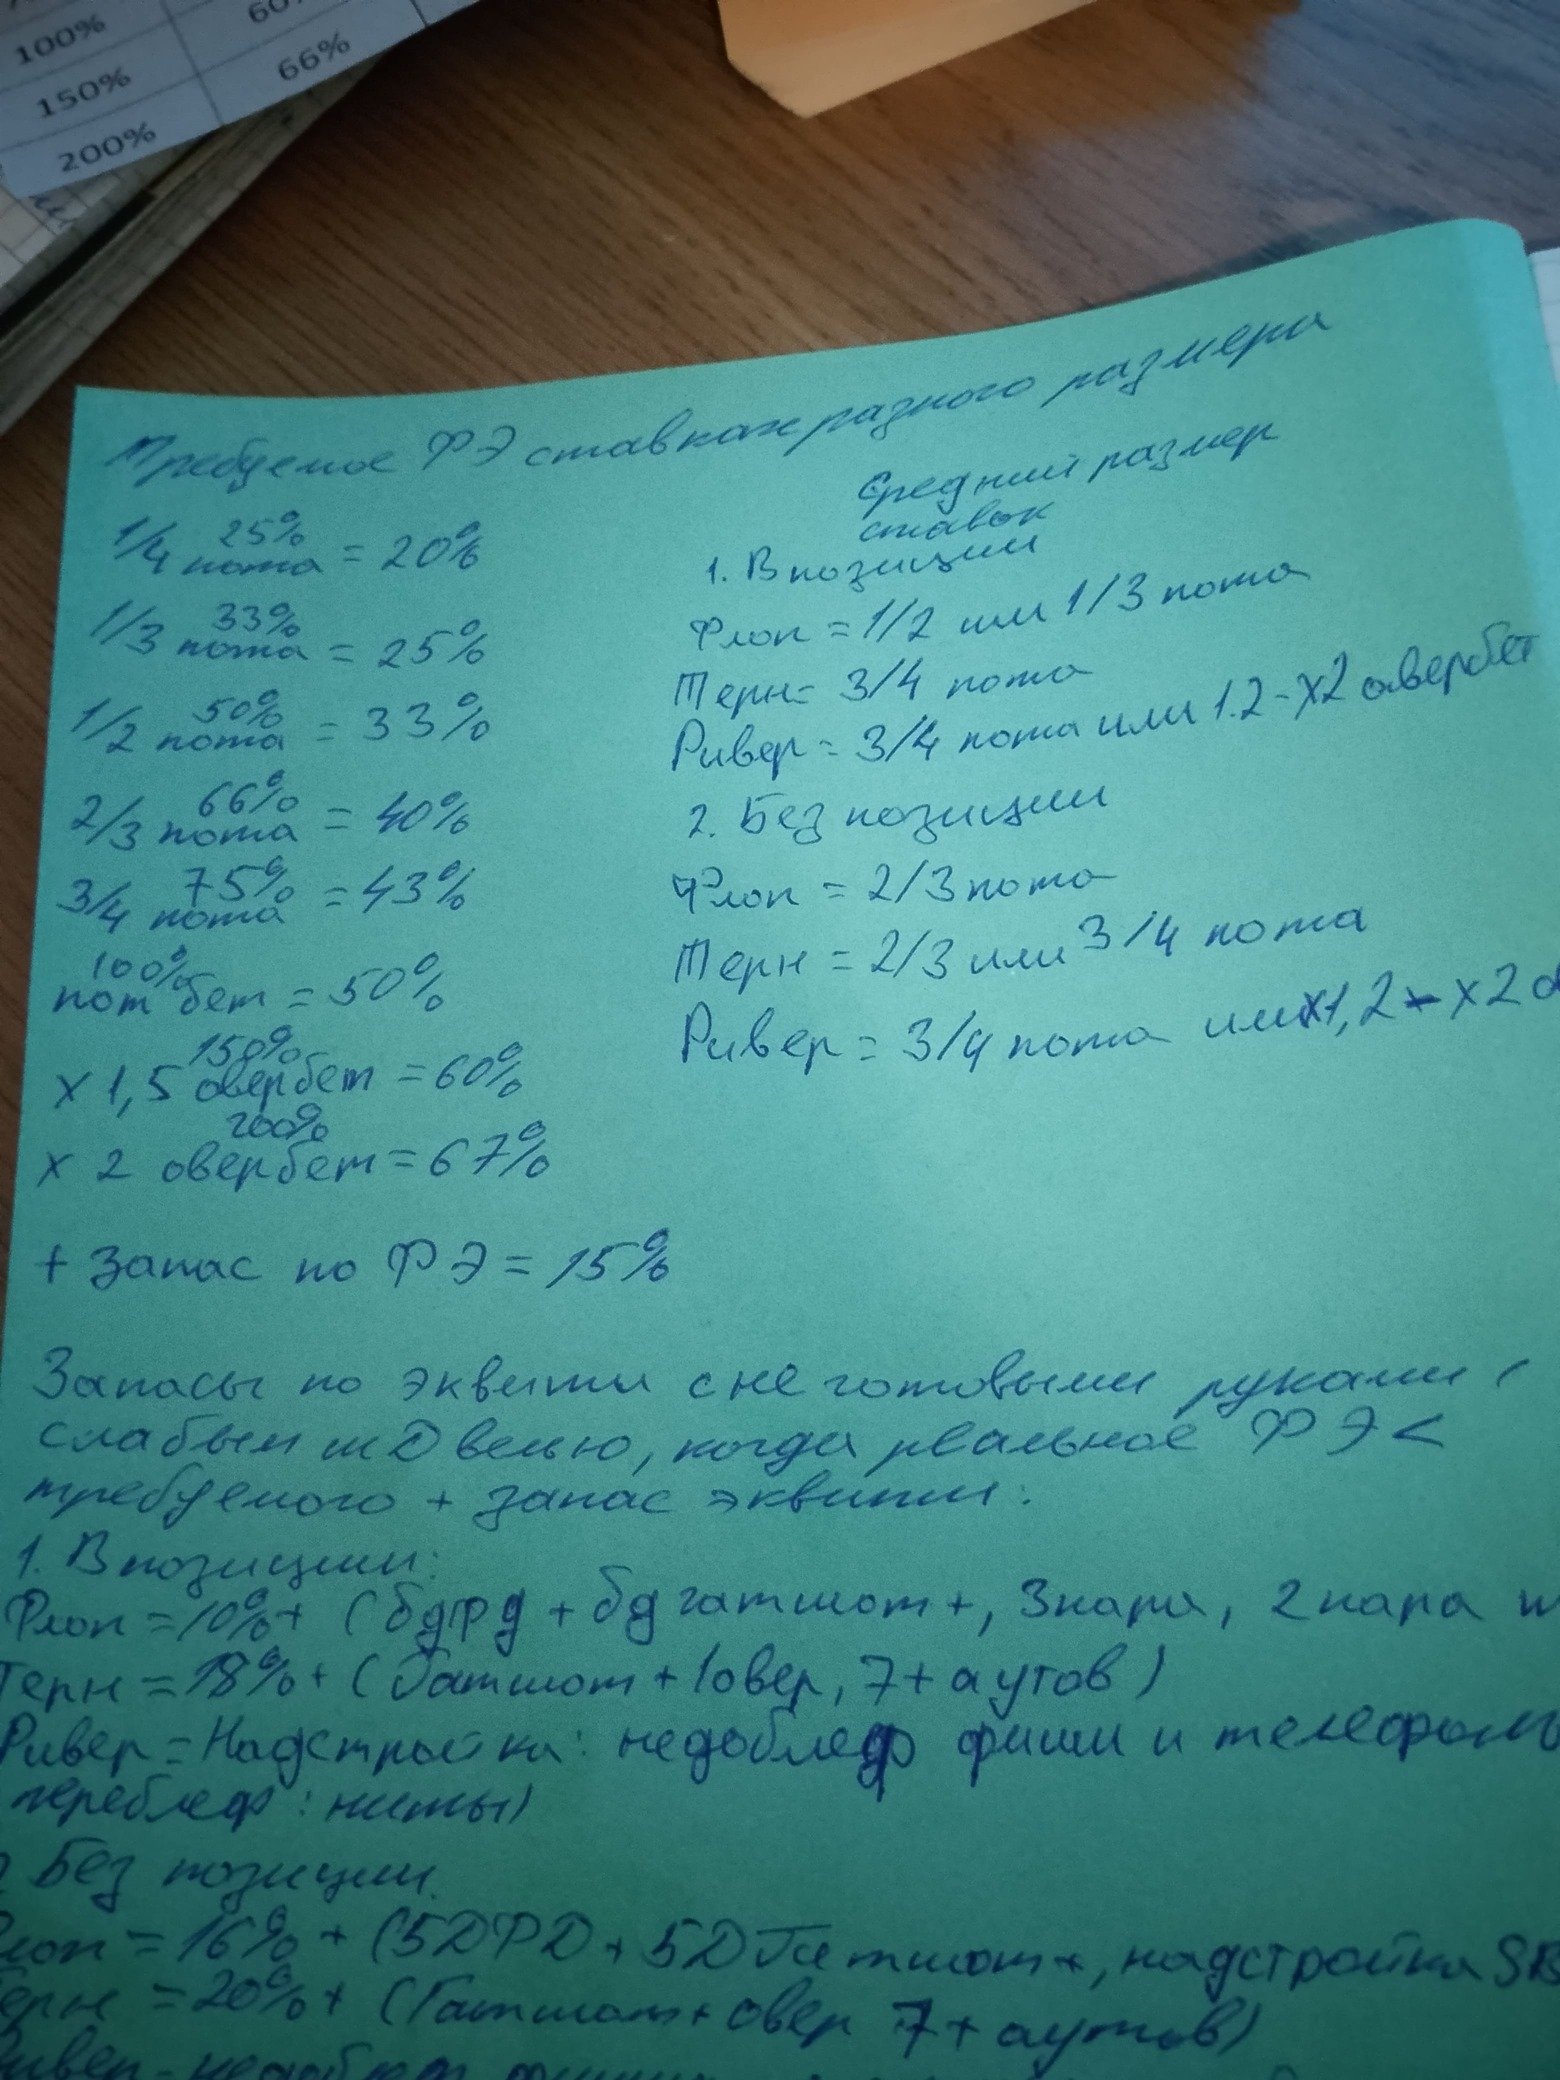 100%
150%
66%
200%
Требуемое ФЭ ставках разного размера
25%
1/4 пота = 20%
33%
1/3 пота = 25%
50%
1/2 пота = 33%
66%
2/3 пота = 40%
75%
3/4 пота = 43%
100%
пот бет = 50%
150%
х 1,5 овербет = 60%
200%
х 2 овербет = 67%
+ Запас по ФЭ = 15%
Средний размер
ставок
1. В позиции
Флоп = 1/2 или 1/3 пота
Терн = 3/4 пота
Ривер = 3/4 пота или 1.2 - х2 овербет
2. Без позиции
Флоп = 2/3 пота
Терн = 2/3 или 3/4 пота
Ривер = 3/4 пота или х1,2 - х2
Запасы по эквити с не готовыми руками (
слабым шД велью, когда реальное ФЭ <
требуемого + запас эквити:
1. В позиции:
Флоп = 10% + (бдфд + бд гатшот +, 3 пара, 2 пара
Терн = 18% + (Гатшот + 1 овер, 7 + аутов)
Ривер = Надстройка: недоблеф фиши и
переблеф: ниты)
Без позиции
= 16% + (БДФД + БД Гатшот +, надстройка
= 20% + (Гатшот + овер 7 + аутов)